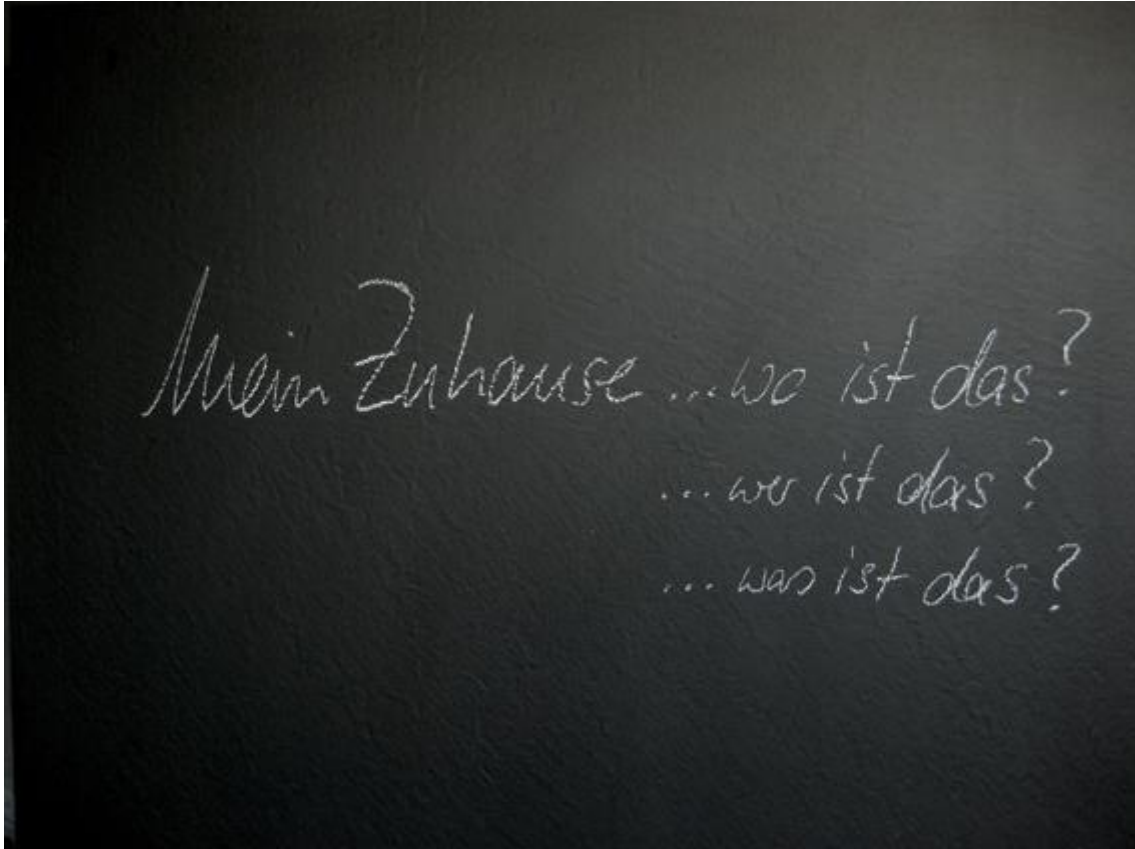 Mein Zuhause ... wo ist das?
... wer ist das?
... was ist das?